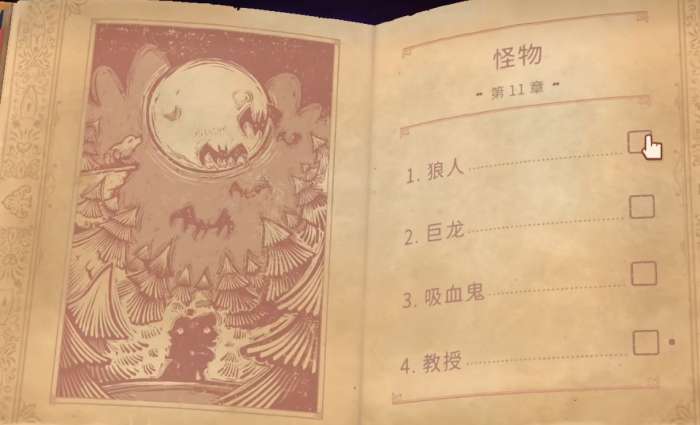 怪物
- 第 11 章 -
1. 狼人
2. 巨龙
3. 吸血鬼
4. 教授